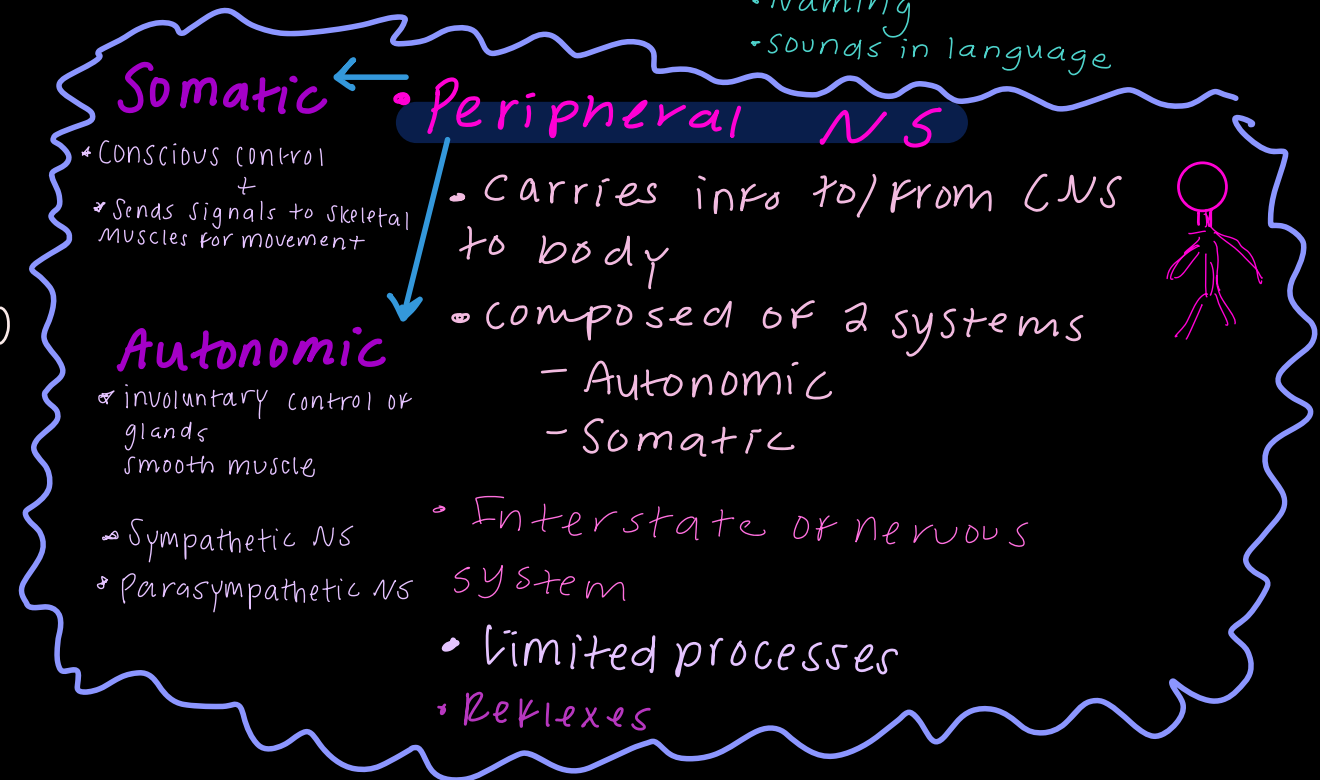 • Naming
• sounds in language
Somatic
• Conscious control
+
• Sends signals to skeletal
muscles for movement
Autonomic
• involuntary control of
glands
smooth muscle
• Sympathetic NS
• Parasympathetic NS
• Peripheral NS
• Carries info to/from CNS
to body
• composed of 2 systems
- Autonomic
- Somatic
• Interstate of nervous
system
• Limited processes
• Reflexes